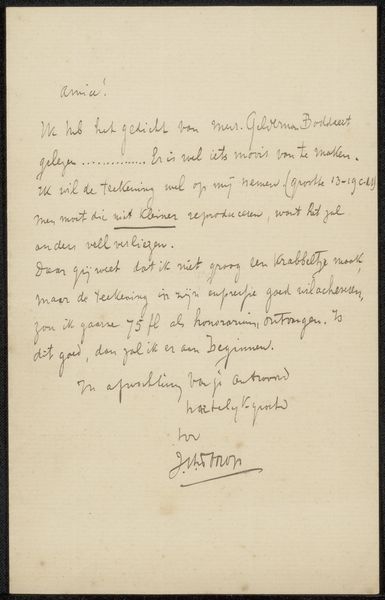 Amice!
Ik heb het gedicht van mevr. Gelderman Boddaert
gelezen .............. Er is wel iets moois van te maken.
Ik wil de teekening wel op mij nemen (grootte 13-19 c.M)
men moet die niet kleiner reproduceeren, want het zal
anders veel verliezen.
Daar gij weet dat ik niet graag een krabbeltje maak,
maar de teekening in zijn expressie goed wil
zou ik gaarne 75 fl als honorarium ontvangen. Is
dit goed, dan zal ik er aan beginnen.
In afwachting van je antwoord
hartelijk groet
tov
J.Th.Toorop